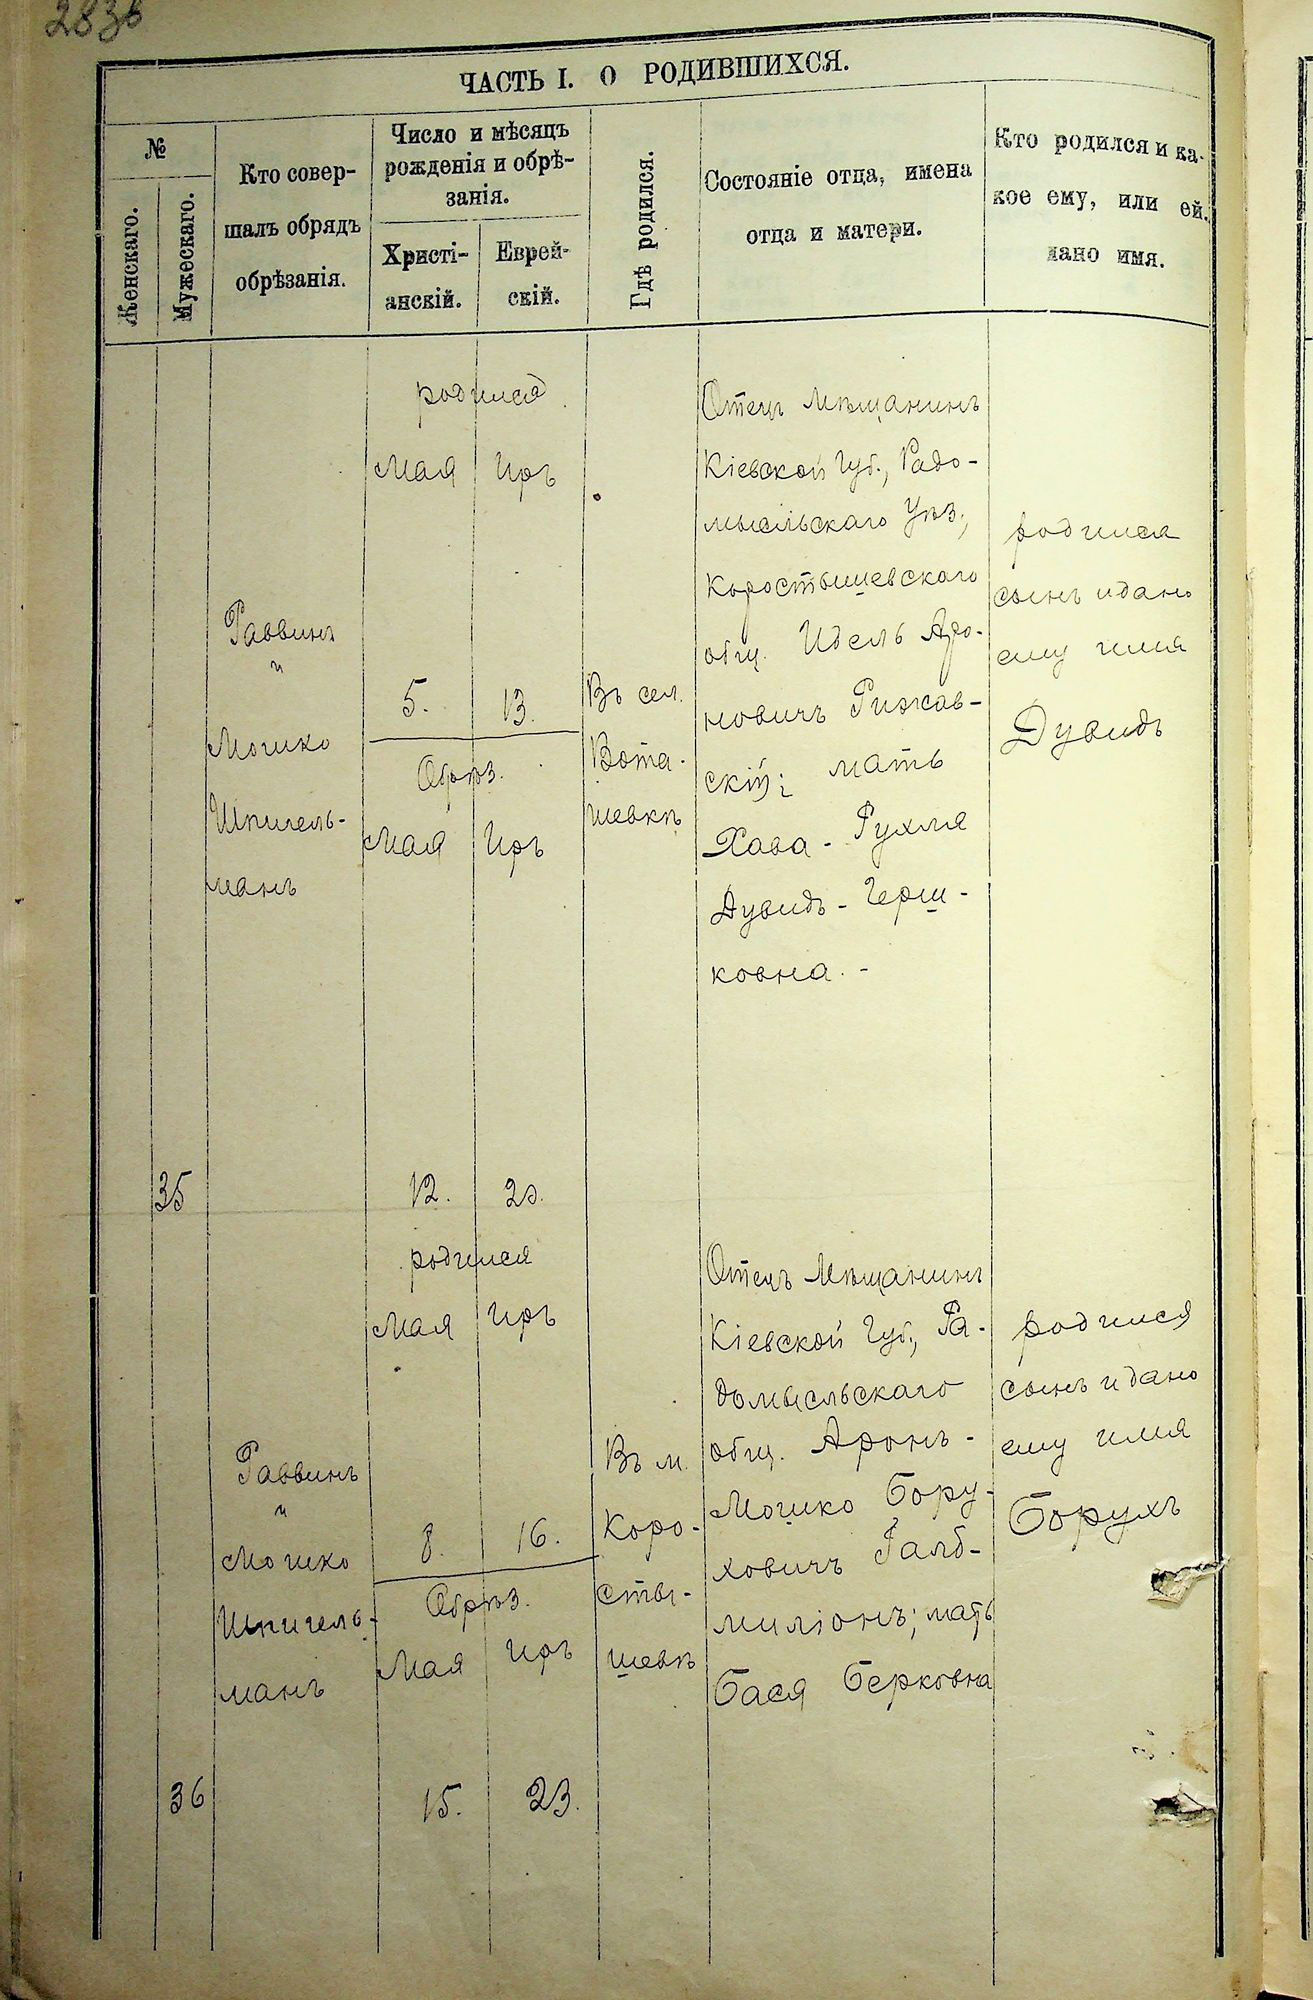 283в
ЧАСТЬ I. О РОДИВШИХСЯ.
№
Женскаго.
Мужескаго.
Кто совер-
шалъ обрядъ
обрѣзанія.
Число и мѣсяцъ
рожденія и обрѣ-
занія.
Христі-
анскій.
Еврей-
скій.
Гдѣ родился.
Состояніе отца, имена
отца и матери.
Кто родился и ка-
кое ему, или ей,
дано имя.
35
Раввинъ
и
Мошко
Шпигель-
манъ
родился
Мая Иръ
5. 13.
Обрѣз.
Мая Иръ
12. 20.
Въ сел.
Вота-
шевкѣ
Отецъ Мѣщанинъ
Кіевской Губ., Радо-
мысльскаго Уѣз.,
Коростышевскаго
общ. Идель Аро-
новичъ Рижав-
скій; мать
Хава - Рухля
Дувидъ - Герш-
ковна. -
родился
сынъ и дано
ему имя
Дувидъ
36
Раввинъ
и
Мошко
Шпигель-
манъ
родился
Мая Иръ
8. 16.
Обрѣз.
Мая Иръ
15. 23.
Въ м.
Коро-
сты-
шевѣ
Отецъ Мѣщанинъ
Кіевской Губ., Ра-
домысльскаго
общ. Аронъ-
Мошко Бору-
ховичъ Галб-
миліонъ; мать
Бася Берковна
родился
сынъ и дано
ему имя
Борухъ